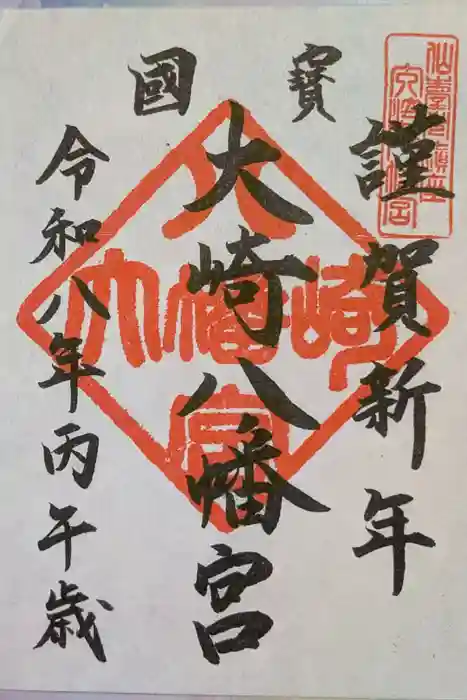 國寳
謹賀新年
大崎八幡宮
令和八年丙午歳
八
大幡崎
宮